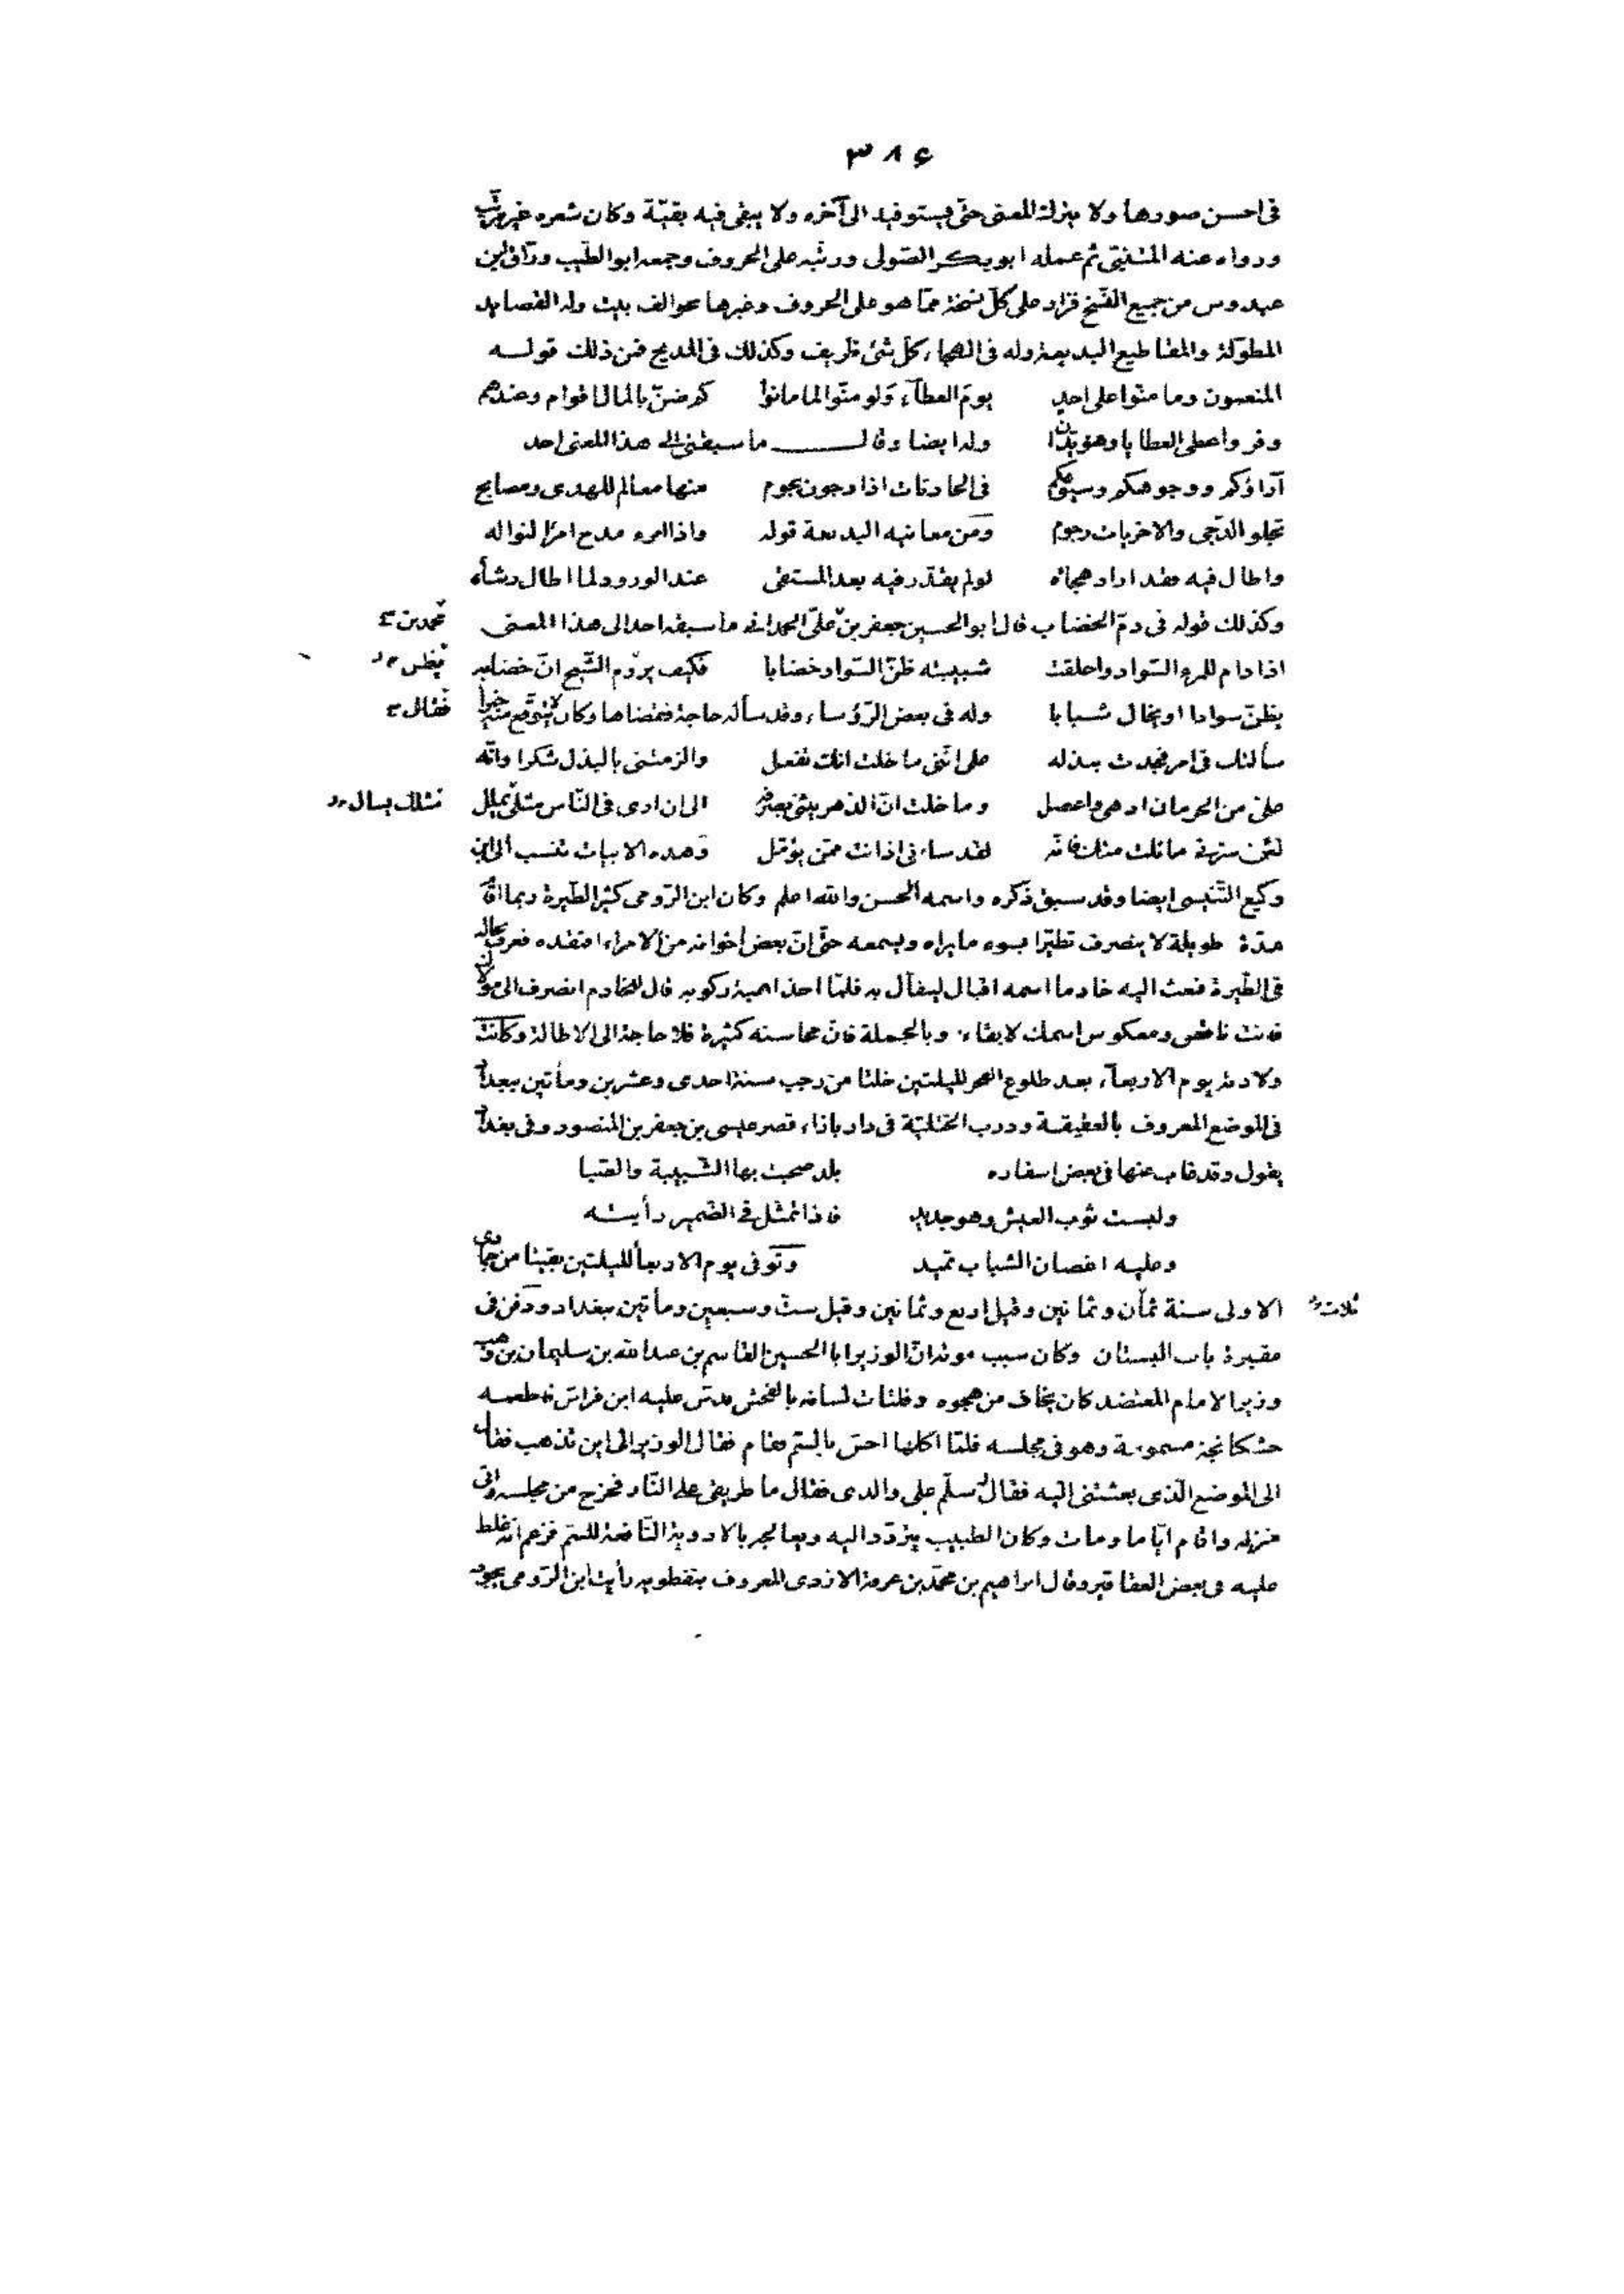 ٣٨٤
فى احسن صورها ولا يترك المعنى حتّى يستوفيه الى آخره ولا يبقى فيه بقيّة وكان شعره غير مرتّب
ورواه عنه المتنبّى ثم عمله ابو بكر الصّولى ورتّبه على الحروف وجمعه ابو الطّيب ورّاق ابن
عبدوس من جميع النّسخ فزاد على كلّ نسخة ممّا هو على الحروف وغيرها نحو الف بيت وله القصايد
المطوّلة والمقاطيع البديعة وله فى الهجاء كلّ شئ ظريف وكذلك فى المديح فمن ذلك قولــه
المنعمون وما منّوا على احدٍ يومَ العطآء ولو منّوا لما مانوا كم ضنّ بالمال اقوام وعندهم
وفر واعطى العطايا وهو يدّان وله ايضا وقالـــــ ما سبقنى الى هذا المعنى احد
آراؤكم ووجوهكم وسيوفكم فى الحادثات اذا دجون نجوم منها معالم للهدى ومصابح
تجلو الدّجى والاخريات رجوم ومن معانيه البديعة قوله واذا امرء مدح امرأ لنواله
واطال فيه فقد اراد هجائه لو لم يقدّر فيه بعد المستقى عند الورود لما اطال رشاه
وكذلك قوله فى ذمّ الخضاب قال ابو الحسين جعفر بن علىّ الحمدانى ما سبقه احد الى هذا المعنى محمد بن
اذا دام للمرء السّواد واخلقت شبيبته ظنّ السّواد خضابا فكيف يروم الشّيخ انّ خضابه يظن
يظنّ سوادا او يخال شبابا وله فى بعض الرّؤساء وقد سأله حاجة فقضاها وكان لا يتوقّع منه خيرا فقال
سألتك فى امر فجدت ببذله على انّنى ما خلت انّك تفعل والزمتنى بالبذل شكرا وانّه
علىّ من الحرمان ادهى واعضل وما خلت انّ الدّهر يثنى بصرفه الى ان ارى فى النّاس مثلك يسأل مثلك يسال
لئن سرّنى ما نلت منك فانّه لقد ساءنى اذ انت ممّن يؤمّل وهذه الابيات تنسب الى ابن
وكيع التّنيسى ايضا وقد سبق ذكره واسمه الحسن والله اعلم وكان ابن الرّومى كثير الطّيرة ربما اقام
مدّة طويلة لا ينصرف تطيّرا بسوء ما يراه ويسمعه حتّى انّ بعض اخوانه من الامراء افتقده فعرف بحاله
فى الطّيرة فبعث اليه خادما اسمه اقبال ليتفأل به فلمّا اخذ اهبة ركوبه قال للخادم انصرف الى مولاك
فانت ناقص ومعكوس اسمك لا بقاء وبالجملة فانّ محاسنه كثيرة فلا حاجة الى الاطالة وكانت
ولادته يوم الاربعآء بعد طلوع الفجر لليلتين خلتا من رجب سنة احدى وعشرين ومأتين ببغداد
فى الموضع المعروف بالعقيقة ودرب الختليّة فى دار باذاء قصر عيسى بن جعفر بن المنصور وفى بغداد
يقول وقد غاب عنها فى بعض اسفاره بلد صحبت بها الشّبيبة والصّبا
ولبست ثوب العيش وهو جديد فاذا تمثّل فى الضّمير رأيته
وعليه اغصان الشباب تميد وتوفى يوم الاربعآ لليلتين بقيتا من جمادى
الاولى سنة ثمان وثمانين وقيل اربع وثمانين وقيل ستّ وسبعين ومأتين ببغداد ودفن فى ثلاث
مقبرة باب البستان وكان سبب موته انّ الوزير ابا الحسين القاسم بن عبد الله بن سليمان بن وهب
وزير الامام المعتضد كان يخاف من هجوه وفلتات لسانه بالفحش فدسّ عليه ابن فراش فاطعمه
خشكانجة مسمومة وهو فى مجلسه فلمّا اكلها احسّ بالسّم فقام فقال الوزير الى اين تذهب فقال
الى الموضع الّذى بعثتنى اليه فقال سلّم على والدى فقال ما طريقى على النّار فخرج من مجلسه واتى
منزله واقام ايّاما ومات وكان الطبيب يتردّد اليه ويعالجه بالادوية النّافعة للسّم فزعم انّه غلط
عليه فى بعض العقاقير وقال ابراهيم بن محمّد بن عرفة الازدى المعروف بنفطويه رأيت ابن الرّومى يجود